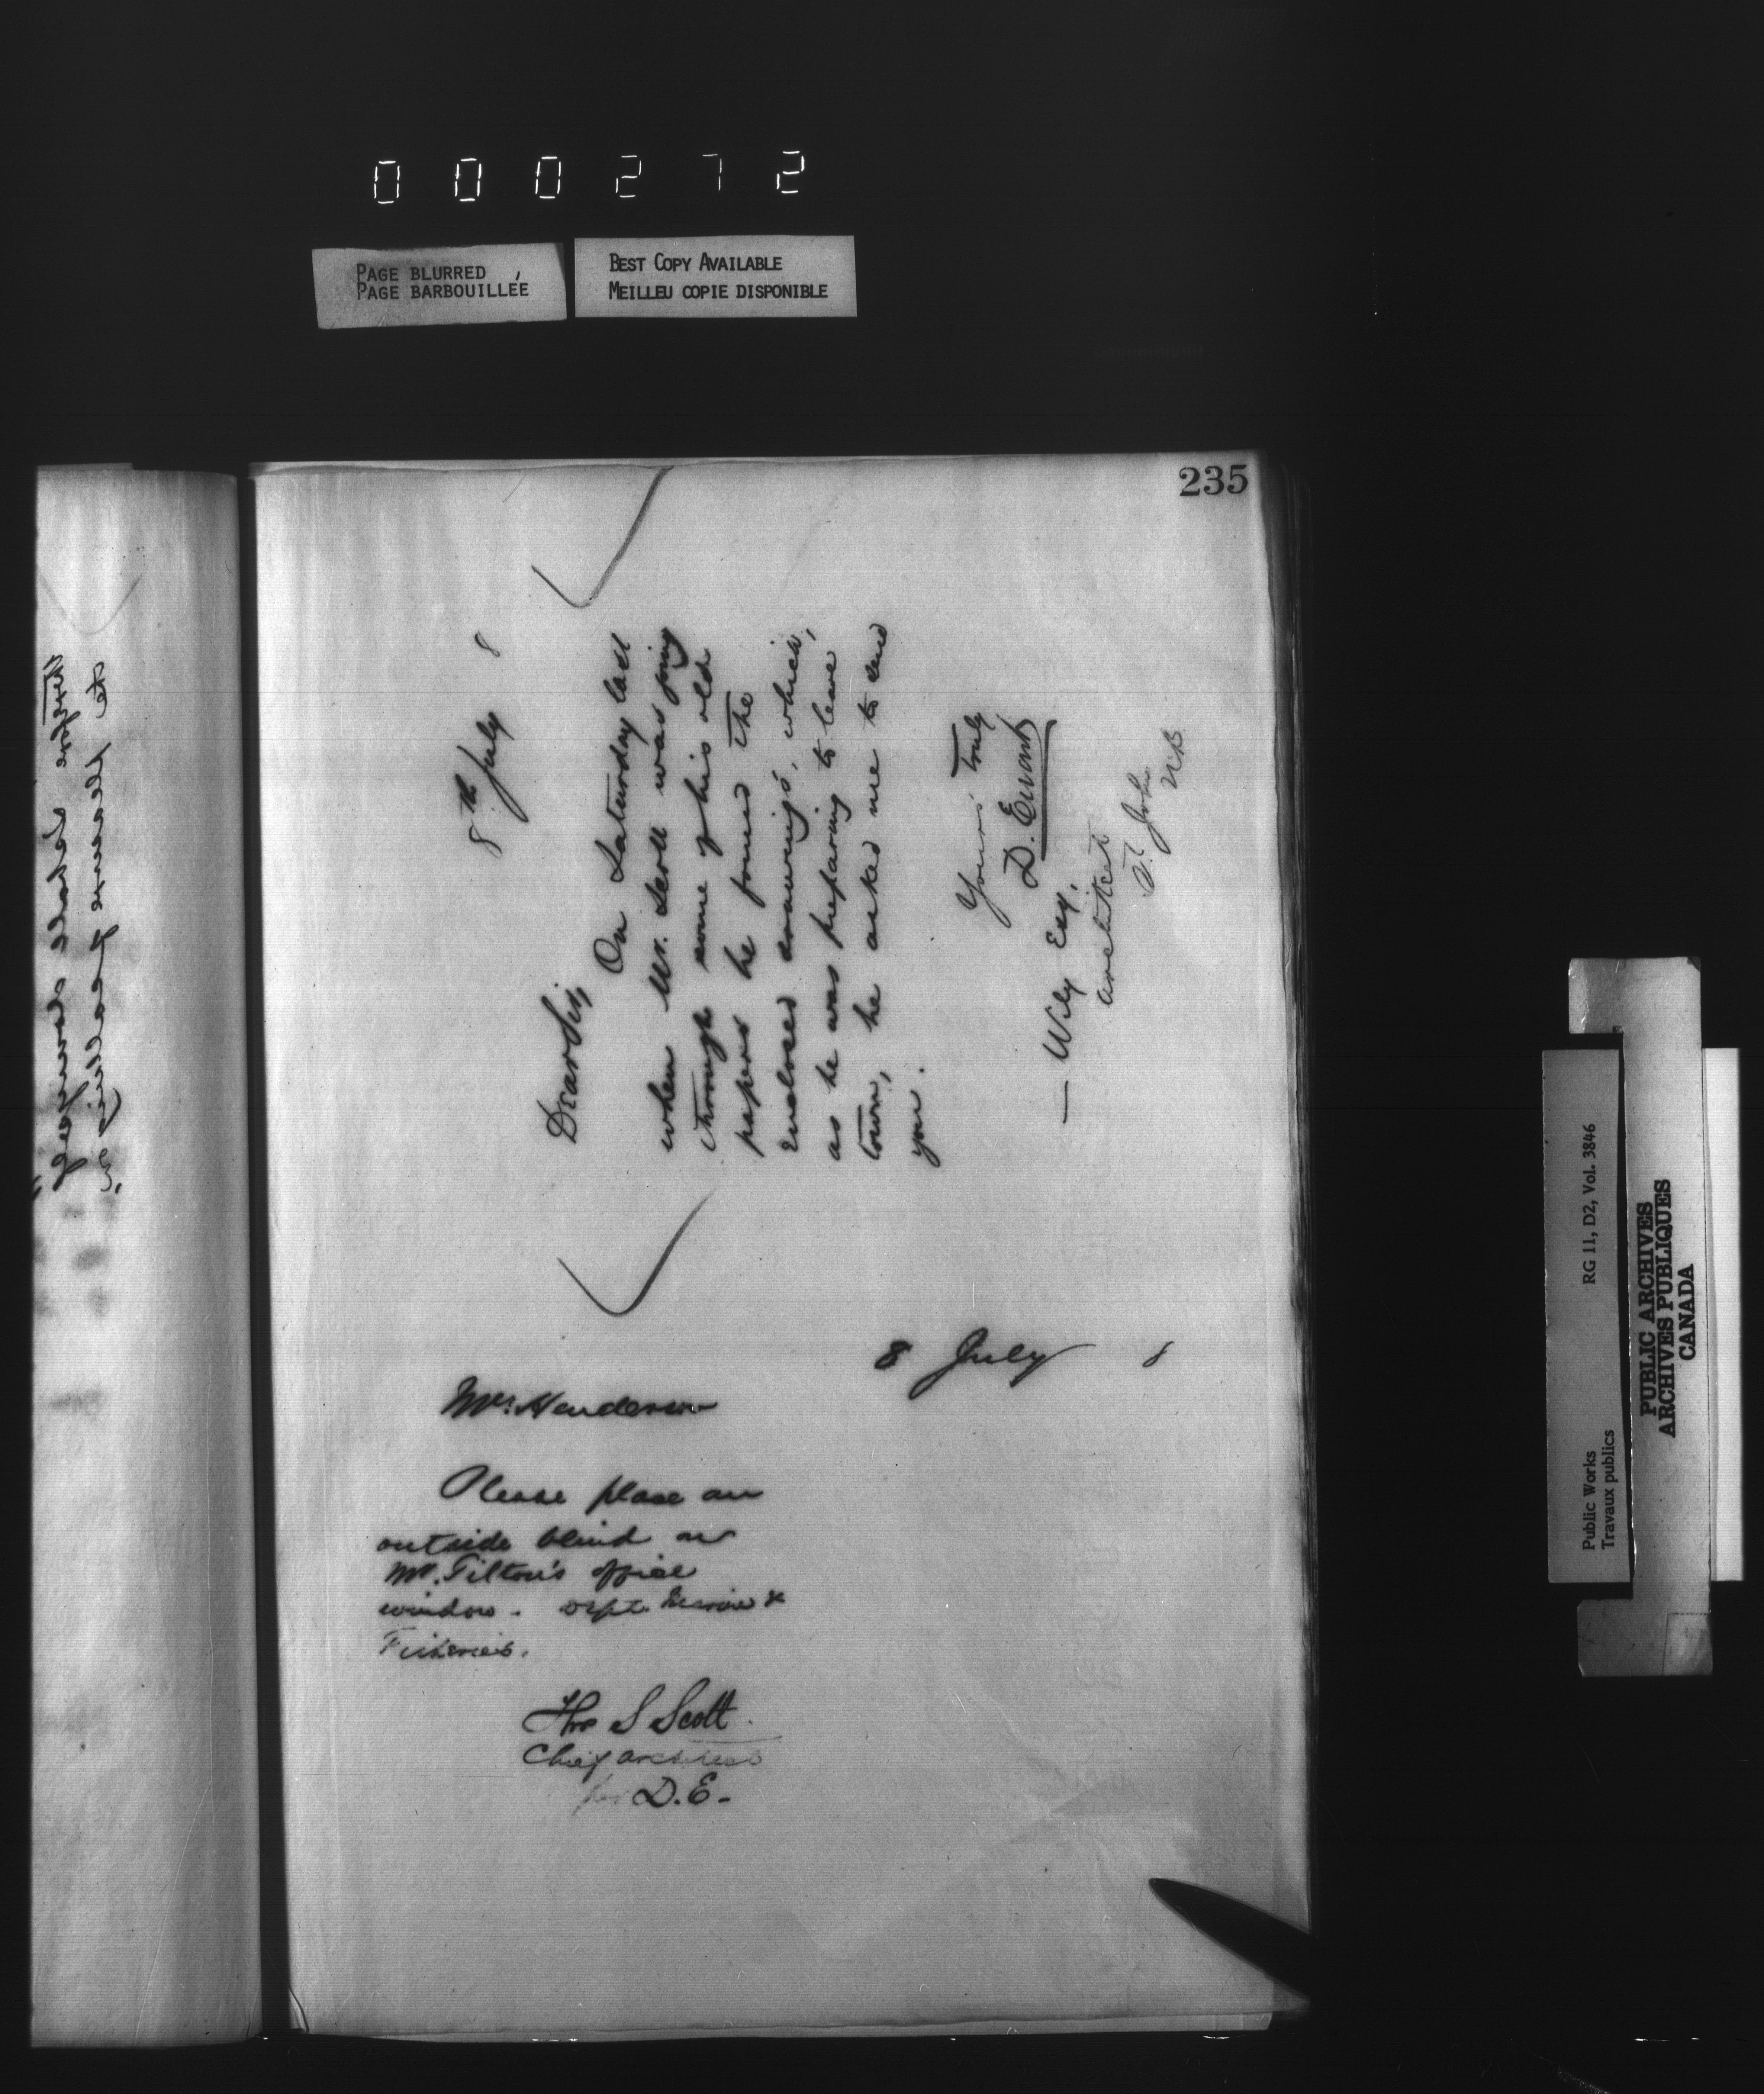 000272
PAGE BLURRED
PAGE BARBOUILLÉE
BEST COPY AVAILABLE
MEILLEU COPIE DISPONIBLE
235
8th July 8
Dear Sir,
On Saturday last
when Mr. Scott was going
through some of his old
papers he found the
enclosed drawings, which,
as he was preparing to leave
town, he asked me to send
you.
Yours truly
D. Ewart
— Wily Esq.
architect
St John
NB
8 July 8
Mr. Henderson
Please place an
outside blind on
Mr. Tilton's office
window. Dept. Marine &
Fisheries.
Thos S Scott
Chief Architect
per D.E.
RG 11, D2, Vol. 3846
Public Works
Travaux publics
PUBLIC ARCHIVES
ARCHIVES PUBLIQUES
CANADA